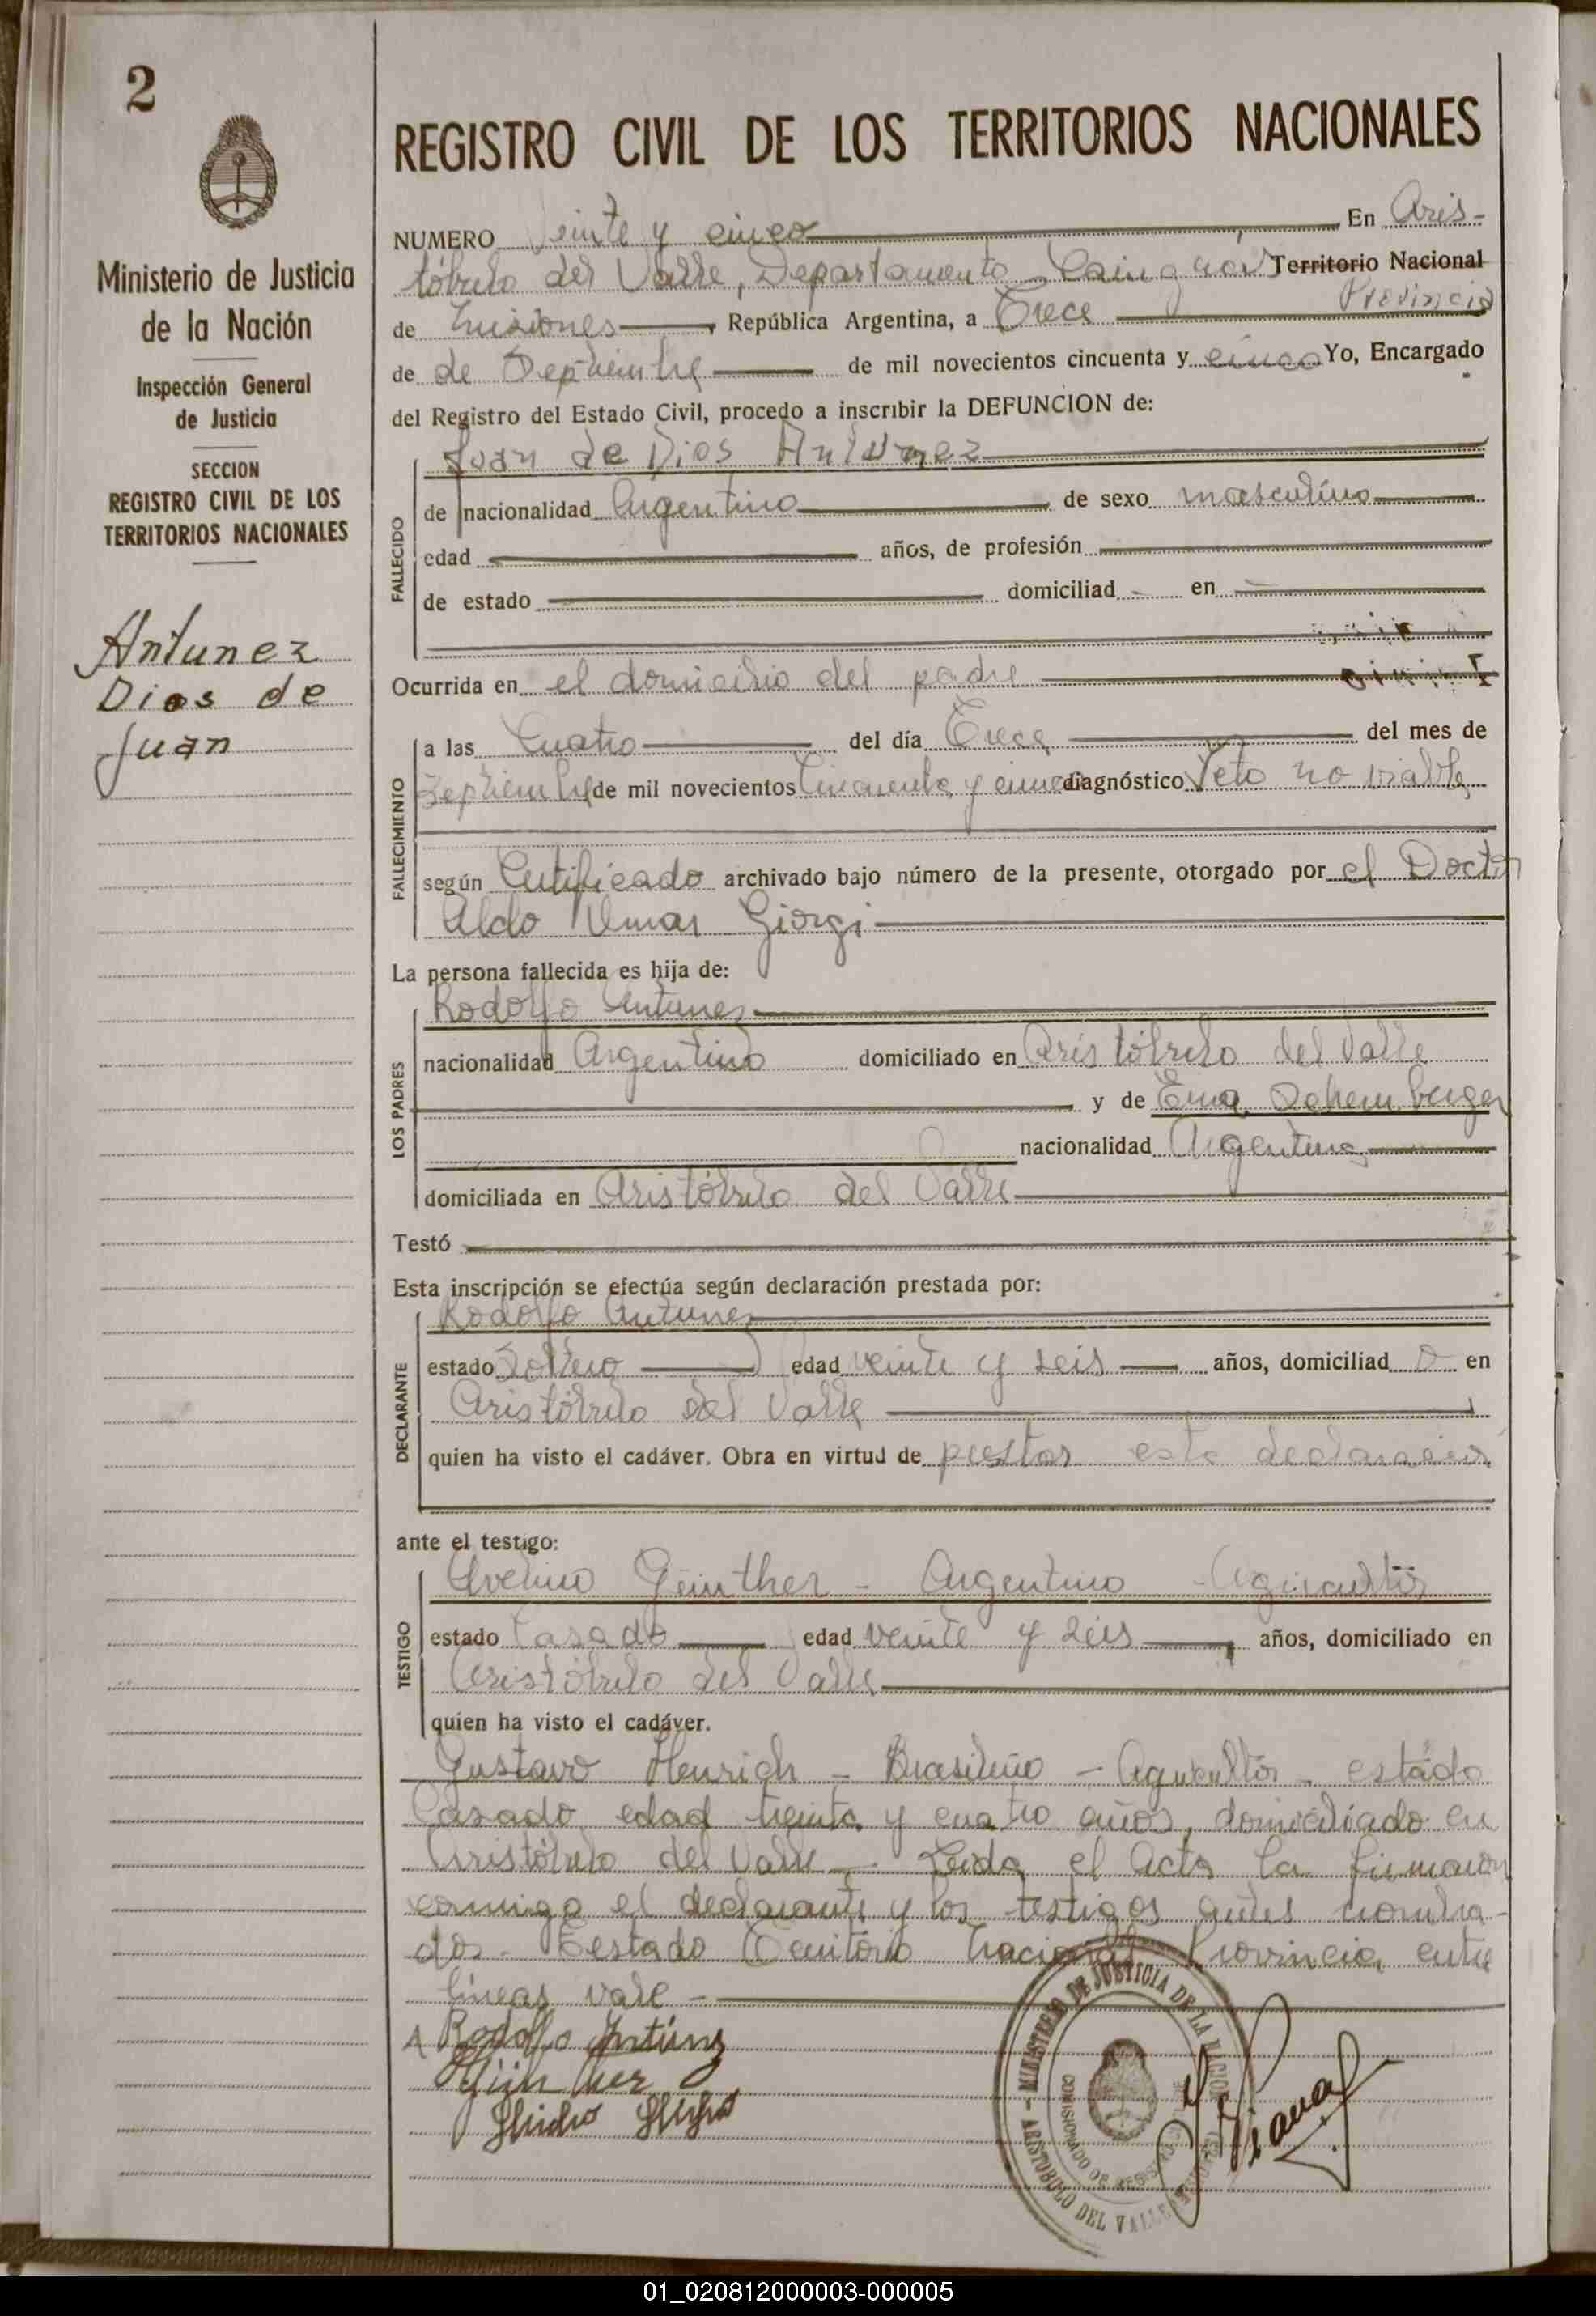 2
Ministerio de Justicia
de la Nación
Inspección General
de Justicia
SECCION
REGISTRO CIVIL DE LOS
TERRITORIOS NACIONALES
Antunez
Dios de
Juan
REGISTRO CIVIL DE LOS TERRITORIOS NACIONALES
NUMERO Veinte y cinco En Aris-
tóbulo del Valle, Departamento Cainguás Territorio Nacional
Provincia
de Misiones, República Argentina, a Trece
de de Septiembre de mil novecientos cincuenta y cinco Yo, Encargado
del Registro del Estado Civil, procedo a inscribir la DEFUNCION de:
Juan de Dios Antunez
FALLECIDO
de nacionalidad Argentino de sexo masculino
edad años, de profesión
de estado domiciliad en
Ocurrida en el domicilio del padre
FALLECIMIENTO
a las Cuatro del día Trece del mes de
Septiembre de mil novecientos Cincuenta y cinco diagnóstico Feto no viable
según Certificado archivado bajo número de la presente, otorgado por el Doctor
Aldo Omar Giorgi
La persona fallecida es hija de:
LOS PADRES
Rodolfo Antunez
nacionalidad Argentino domiciliado en Aristóbulo del Valle
y de Ema Schemberger
nacionalidad Argentina
domiciliada en Aristóbulo del Valle
Testó
Esta inscripción se efectúa según declaración prestada por:
DECLARANTE
Rodolfo Antunez
estado Soltero edad veinte y seis años, domiciliad o en
Aristóbulo del Valle
quien ha visto el cadáver. Obra en virtud de prestar esta declaración
ante el testigo:
TESTIGO
Avelino Günther - Argentino - Agricultór
estado Casado edad veinte y seis, años, domiciliado en
Aristóbulo del Valle
quien ha visto el cadáver.
Gustavo Henrich - Brasileño - Agricultór - estado
Casado edad treinta y cuatro años, domiciliado en
Aristóbulo del Valle - Leida el Acta la firmaron
conmigo el declarante y los testigos antes nombra-
dos - Testado Territorio Nacional Provincia, entre
lineas vale -
Rodolfo Antúnz
Günther
MINISTERIO DE JUSTICIA DE LA NACION
ARISTOBULO DEL VALLE
01_020812000003-000005